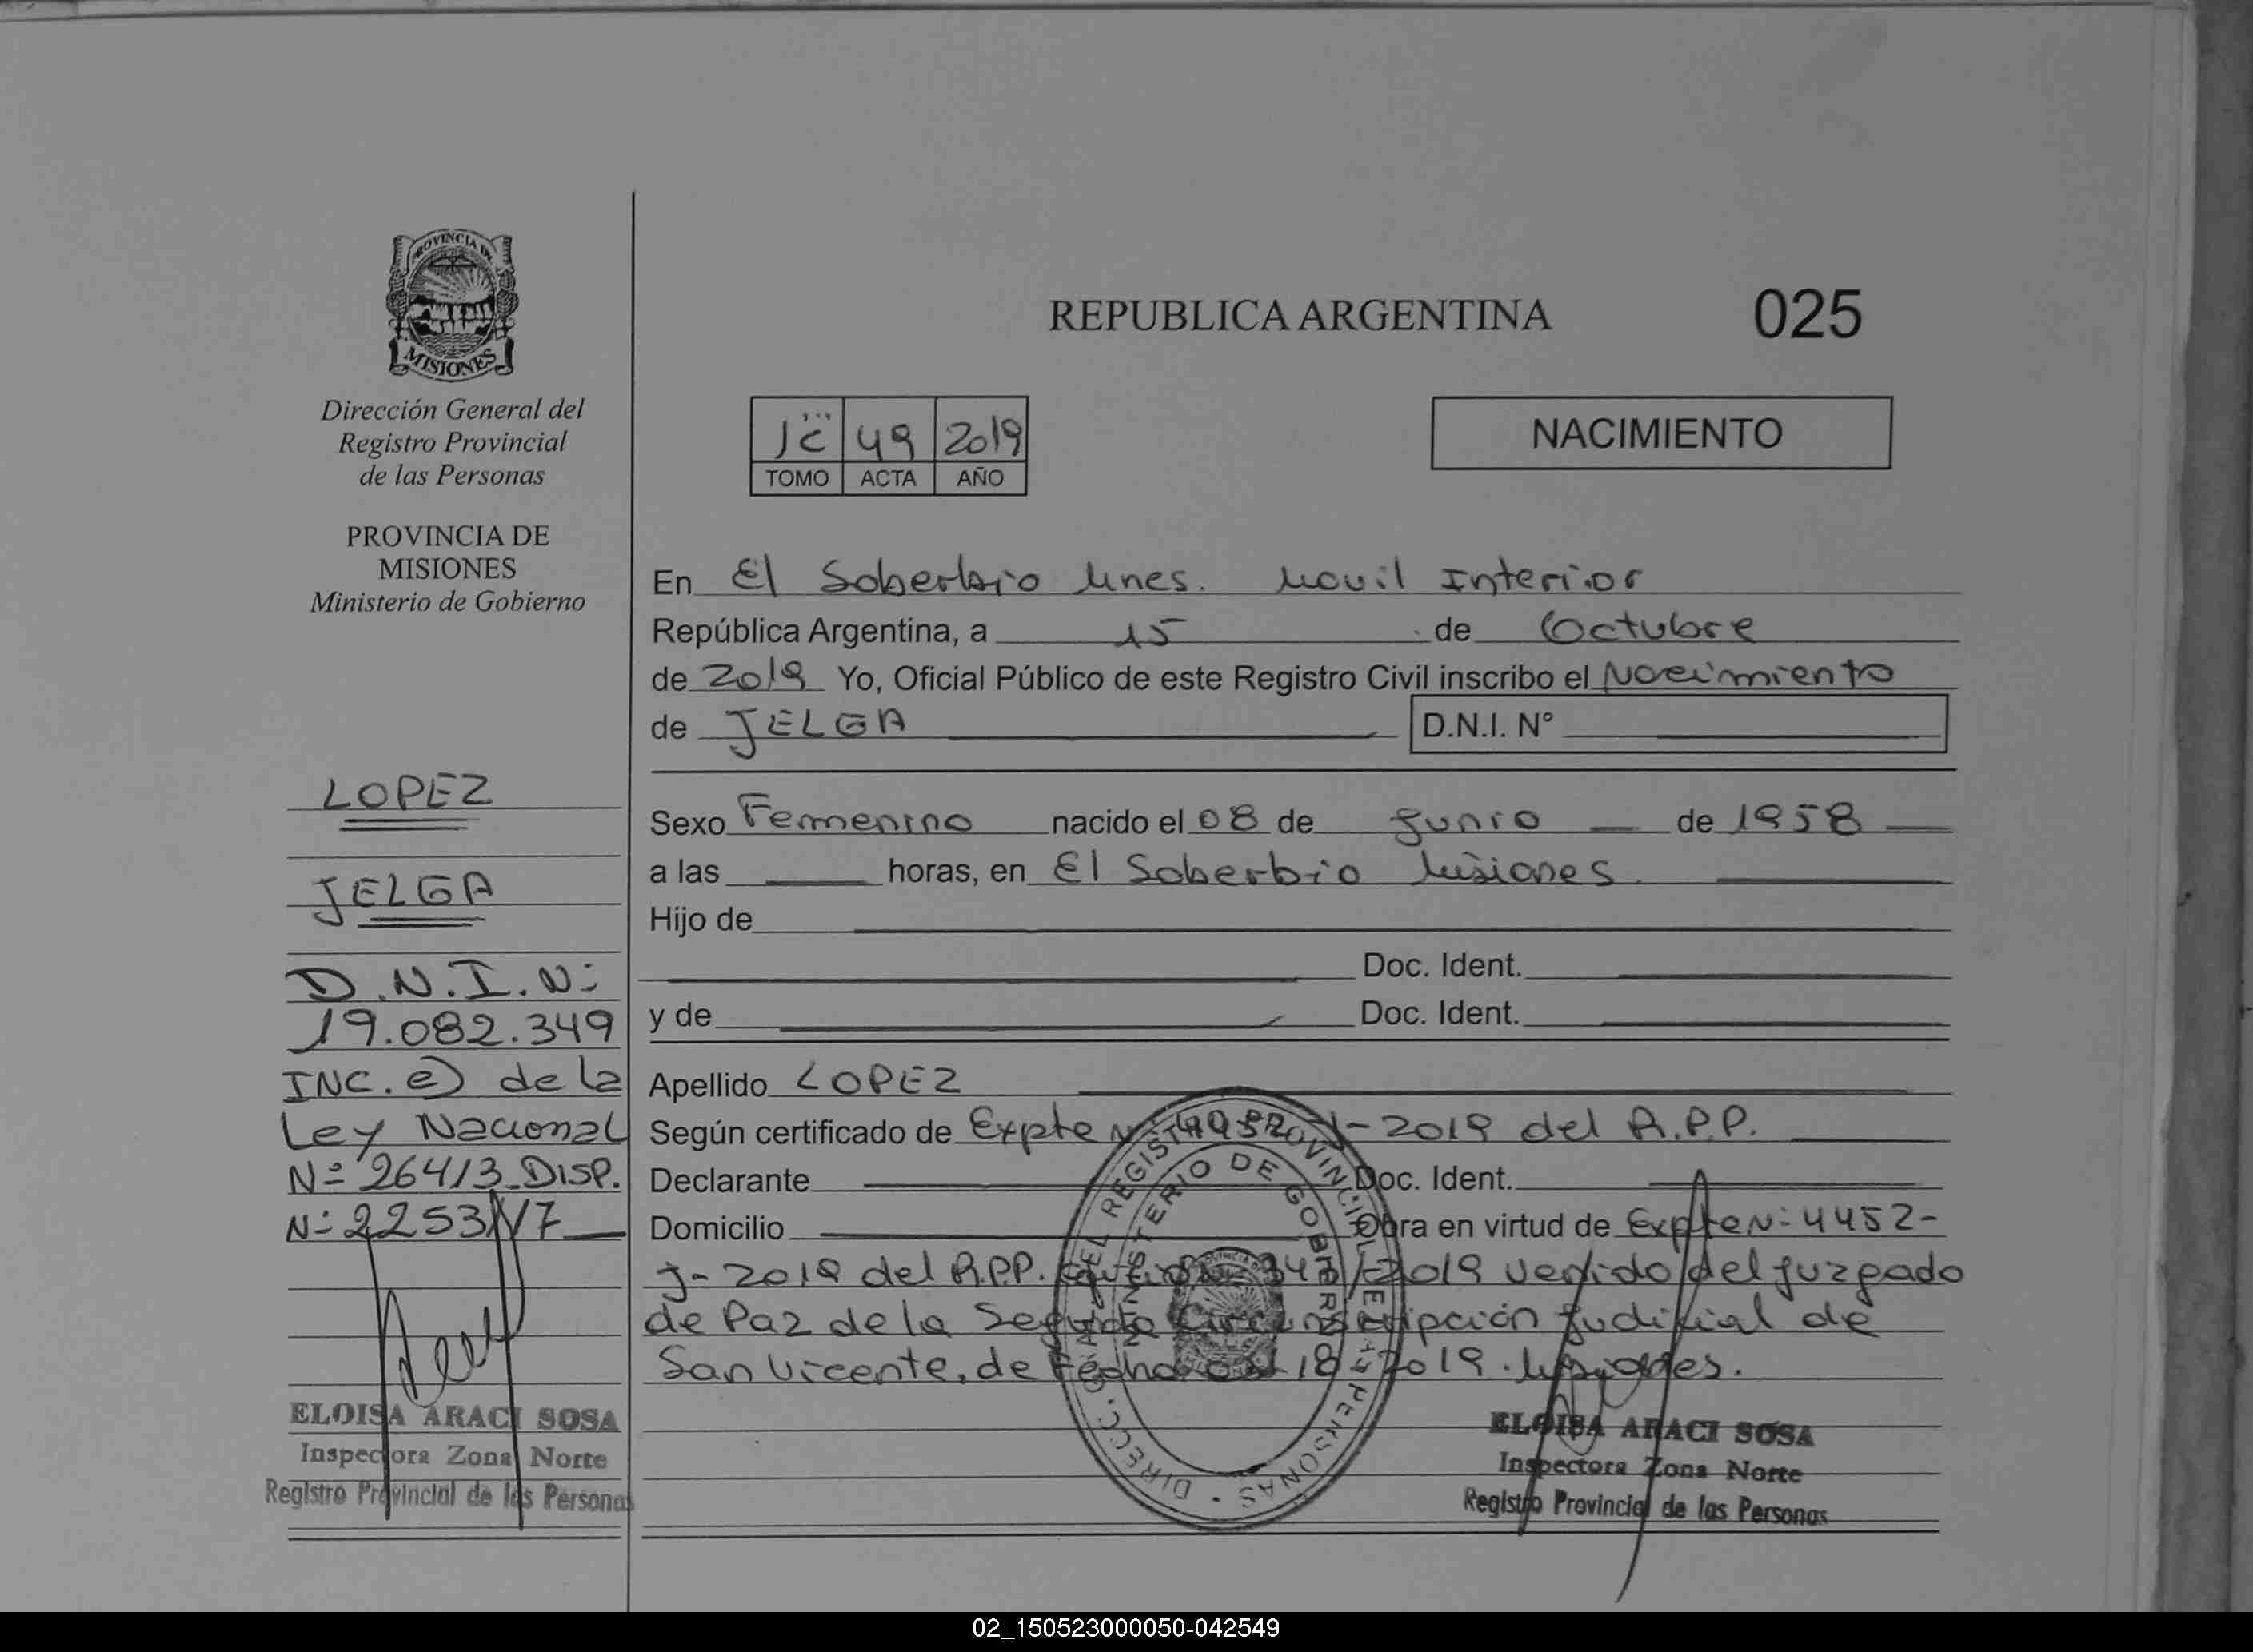 PROVINCIA DE
MISIONES
Dirección General del
Registro Provincial
de las Personas
PROVINCIA DE
MISIONES
Ministerio de Gobierno
LOPEZ
JELGA
D.N.I. N:
19.082.349
INC. e) de la
Ley Nacional
Nº 26413 DISP.
Nº 2253/17
ELOISA ARACI SOSA
Inspectora Zona Norte
Registro Provincial de las Personas
REPUBLICA ARGENTINA
025
49 2019
TOMO ACTA AÑO
NACIMIENTO
En El Soberbio Mnes. Movil Interior
República Argentina, a 15 de Octubre
de 2019 Yo, Oficial Público de este Registro Civil inscribo el Nacimiento
de JELGA D.N.I. N°
Sexo Femenino nacido el 08 de Junio de 1958
a las horas, en El Soberbio Misiones.
Hijo de
Doc. Ident.
y de Doc. Ident.
Apellido LOPEZ
Según certificado de Expte -2019 del R.P.P.
Declarante Doc. Ident.
Domicilio Obra en virtud de Expte N: 4452-
J-2019 del R.P.P. /2019 venido del Juzgado
de Paz de la Segunda Circunscripción Judicial de
San Vicente, de Fecha 2019. Misiones.
DIRECC. GRAL. DEL REGISTRO PROVINCIAL DE LAS PERSONAS
MINISTERIO DE GOBIERNO
ELOISA ARACI SOSA
Inspectora Zona Norte
Registro Provincial de las Personas
02_150523000050-042549